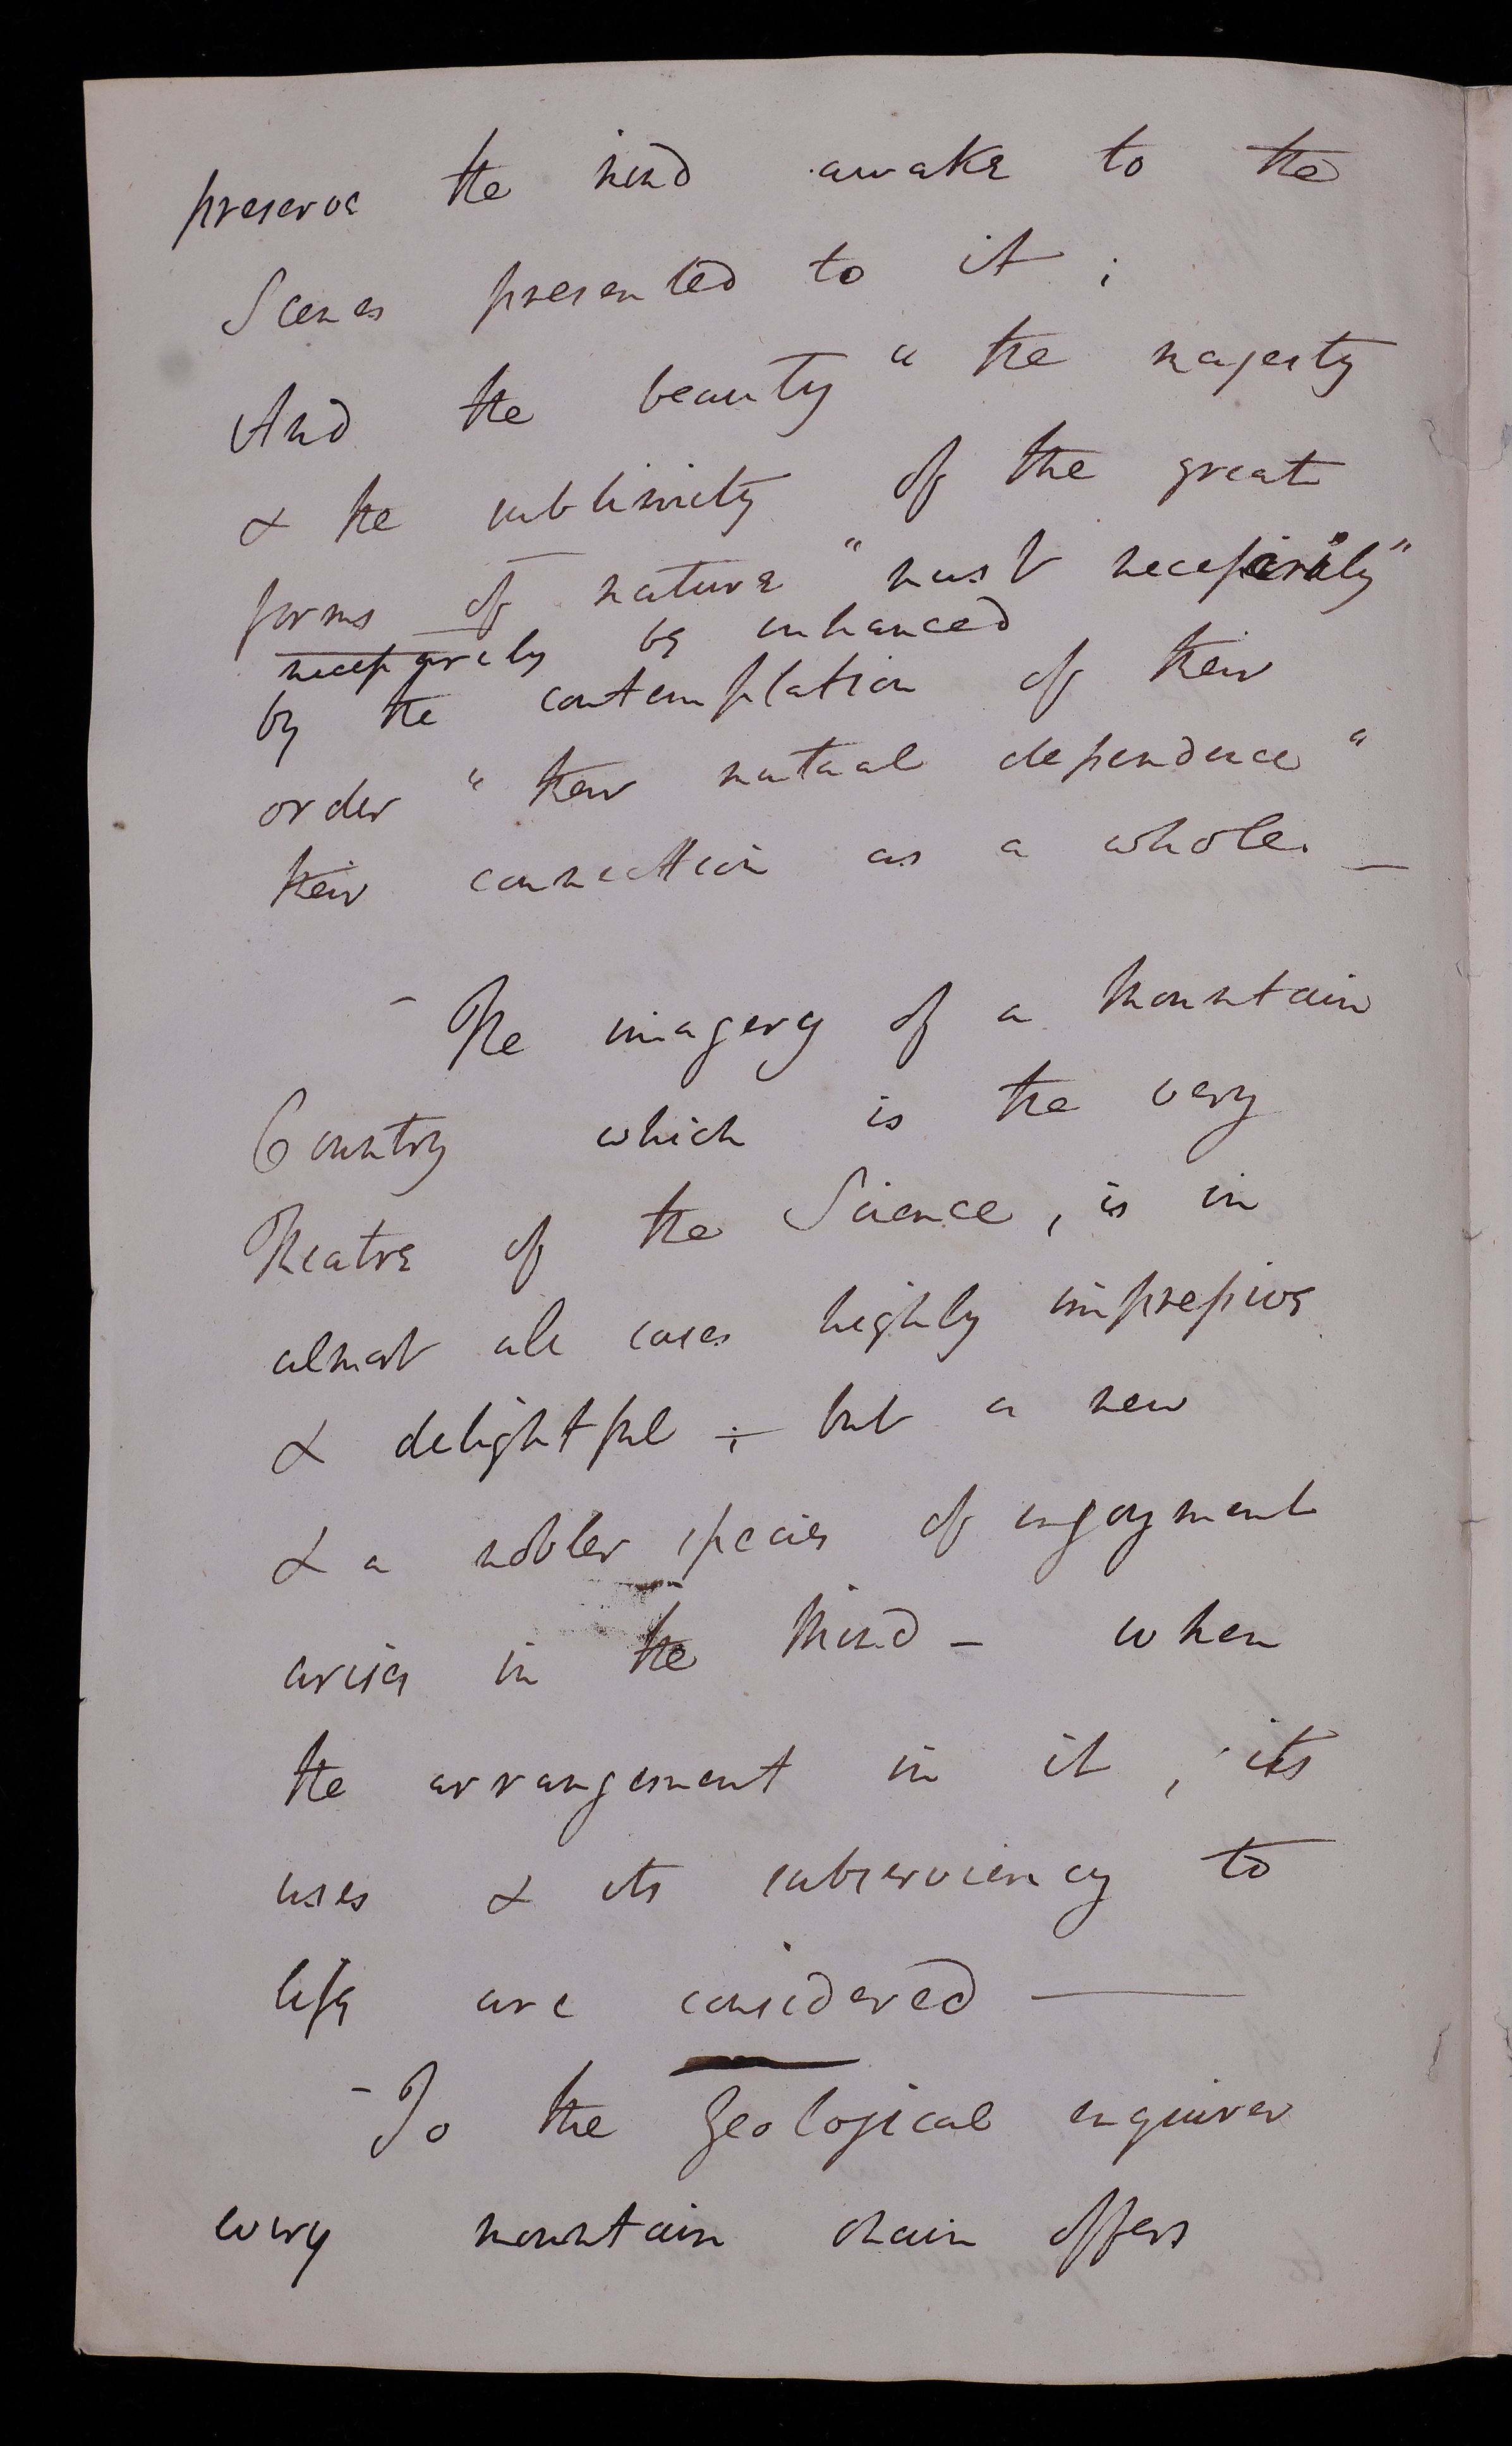 preserve the mind awake to the
Scenes presented to it ;
And the beauty " the majesty
& the sublimity of the great
forms of nature " must necessarily "
necessarily be enhanced
by the contemplation of their
order " their mutual dependence "
their connection as a whole. —
- The imagery of a Mountain
Country which is the very
Theatre of the Science, is in
almost all cases highly impressive
& delightful ; - but a new
& a nobler species of enjoyment
arises in the Mind - when
the arrangement in it, its
uses & its subserviency to
life are considered ——
- To the Geological enquirer
every mountain chain offers